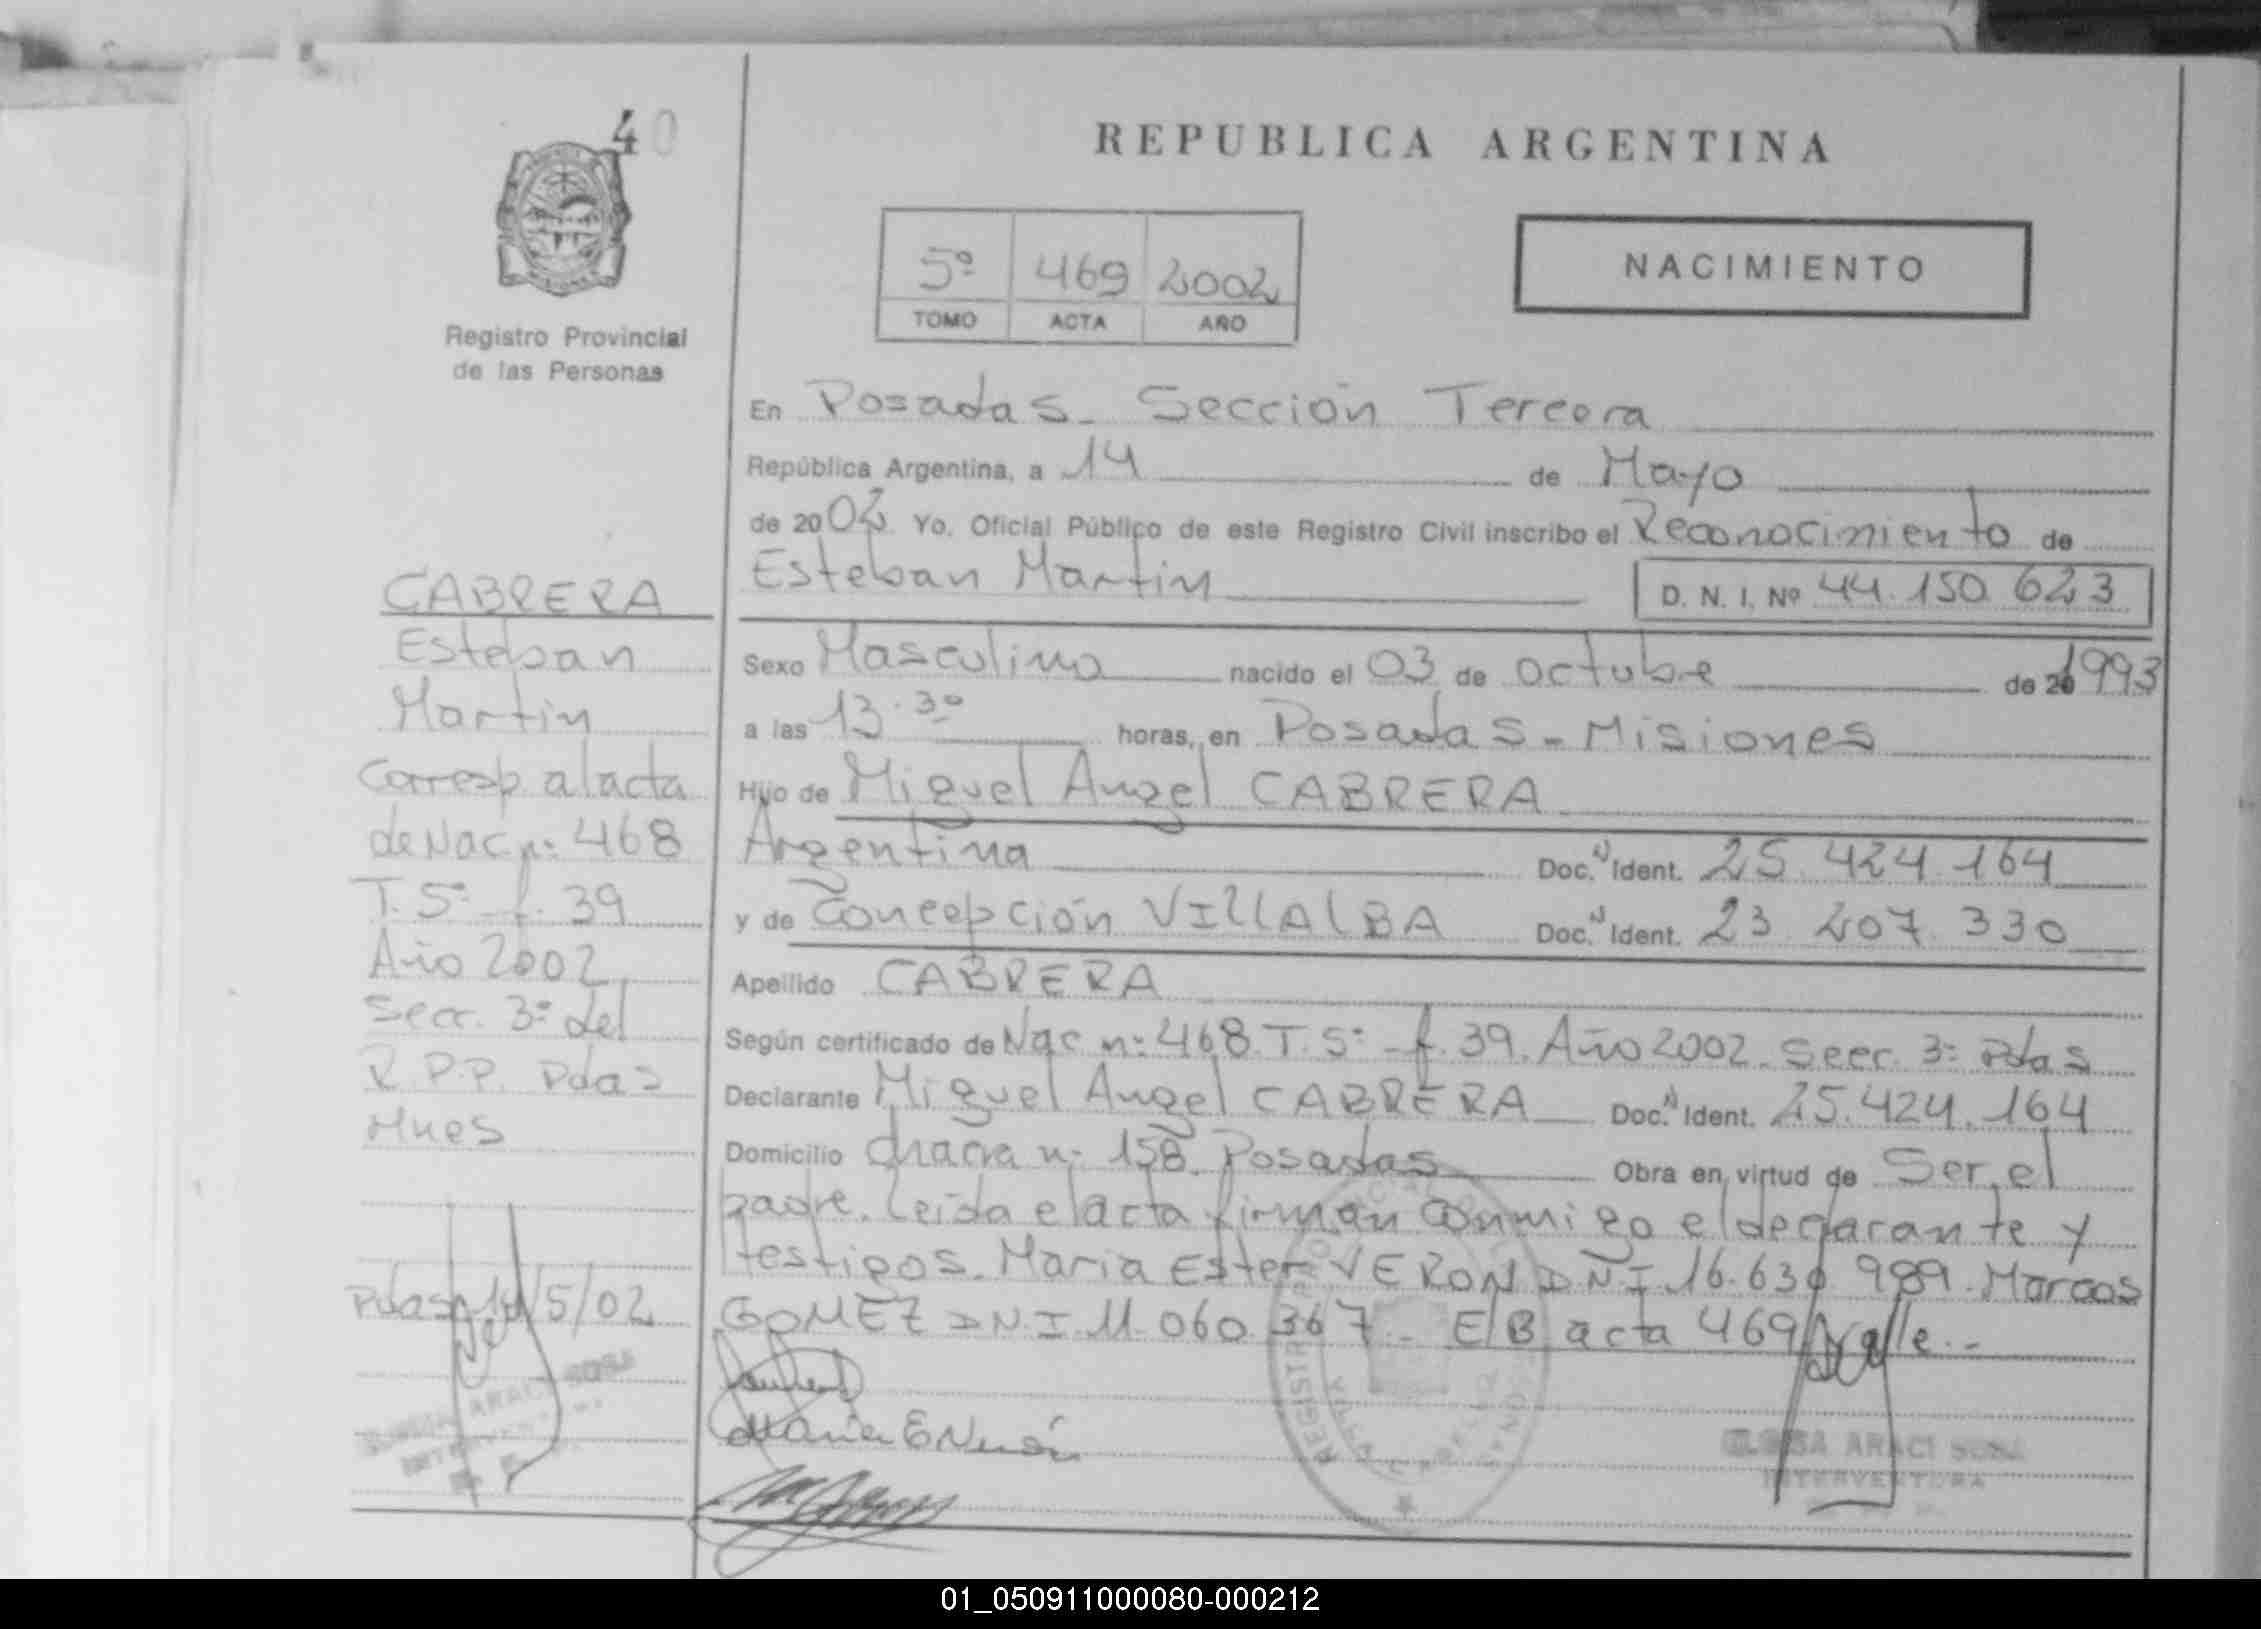 40
REPUBLICA ARGENTINA
5º 469 2002
TOMO ACTA AÑO
NACIMIENTO
Registro Provincial
de las Personas
En Posadas - Sección Tercera
República Argentina, a 14 de Mayo
de 2002 Yo, Oficial Público de este Registro Civil inscribo el Reconocimiento de
Esteban Martin D. N. I. Nº 44.150.623
Sexo Masculino nacido el 03 de octubre de 1993
a las 13.30 horas, en Posadas - Misiones
Hijo de Miguel Angel CABRERA
Argentina Doc. Ident. 25.424.164
y de Concepción VILLALBA Doc. Ident. 23.207.330
Apellido CABRERA
Según certificado de Nac n: 468 T. 5º - f. 39. Año 2002. Secc. 3º Pdas
Declarante Miguel Angel CABRERA Doc. Ident. 25.424.164
Domicilio chacra n: 158. Posadas Obra en virtud de Ser el
padre. Leída el acta firman conmigo el declarante y
testigos. Maria Ester VERON DNI 16.630.989. Marcos
GOMEZ DNI 11.060.367 - El B acta 469 Valle.-
Maria E Verón
CABRERA
Esteban
Martin
Corresp al acta
de Nac n: 468
T. 5º - f. 39
Año 2002
Secc. 3º del
R.P.P. Pdas
Mnes
Pdas 14/5/02
ARACI SOSA
ARACI SOSA
INTERVENTORA
01_050911000080-000212